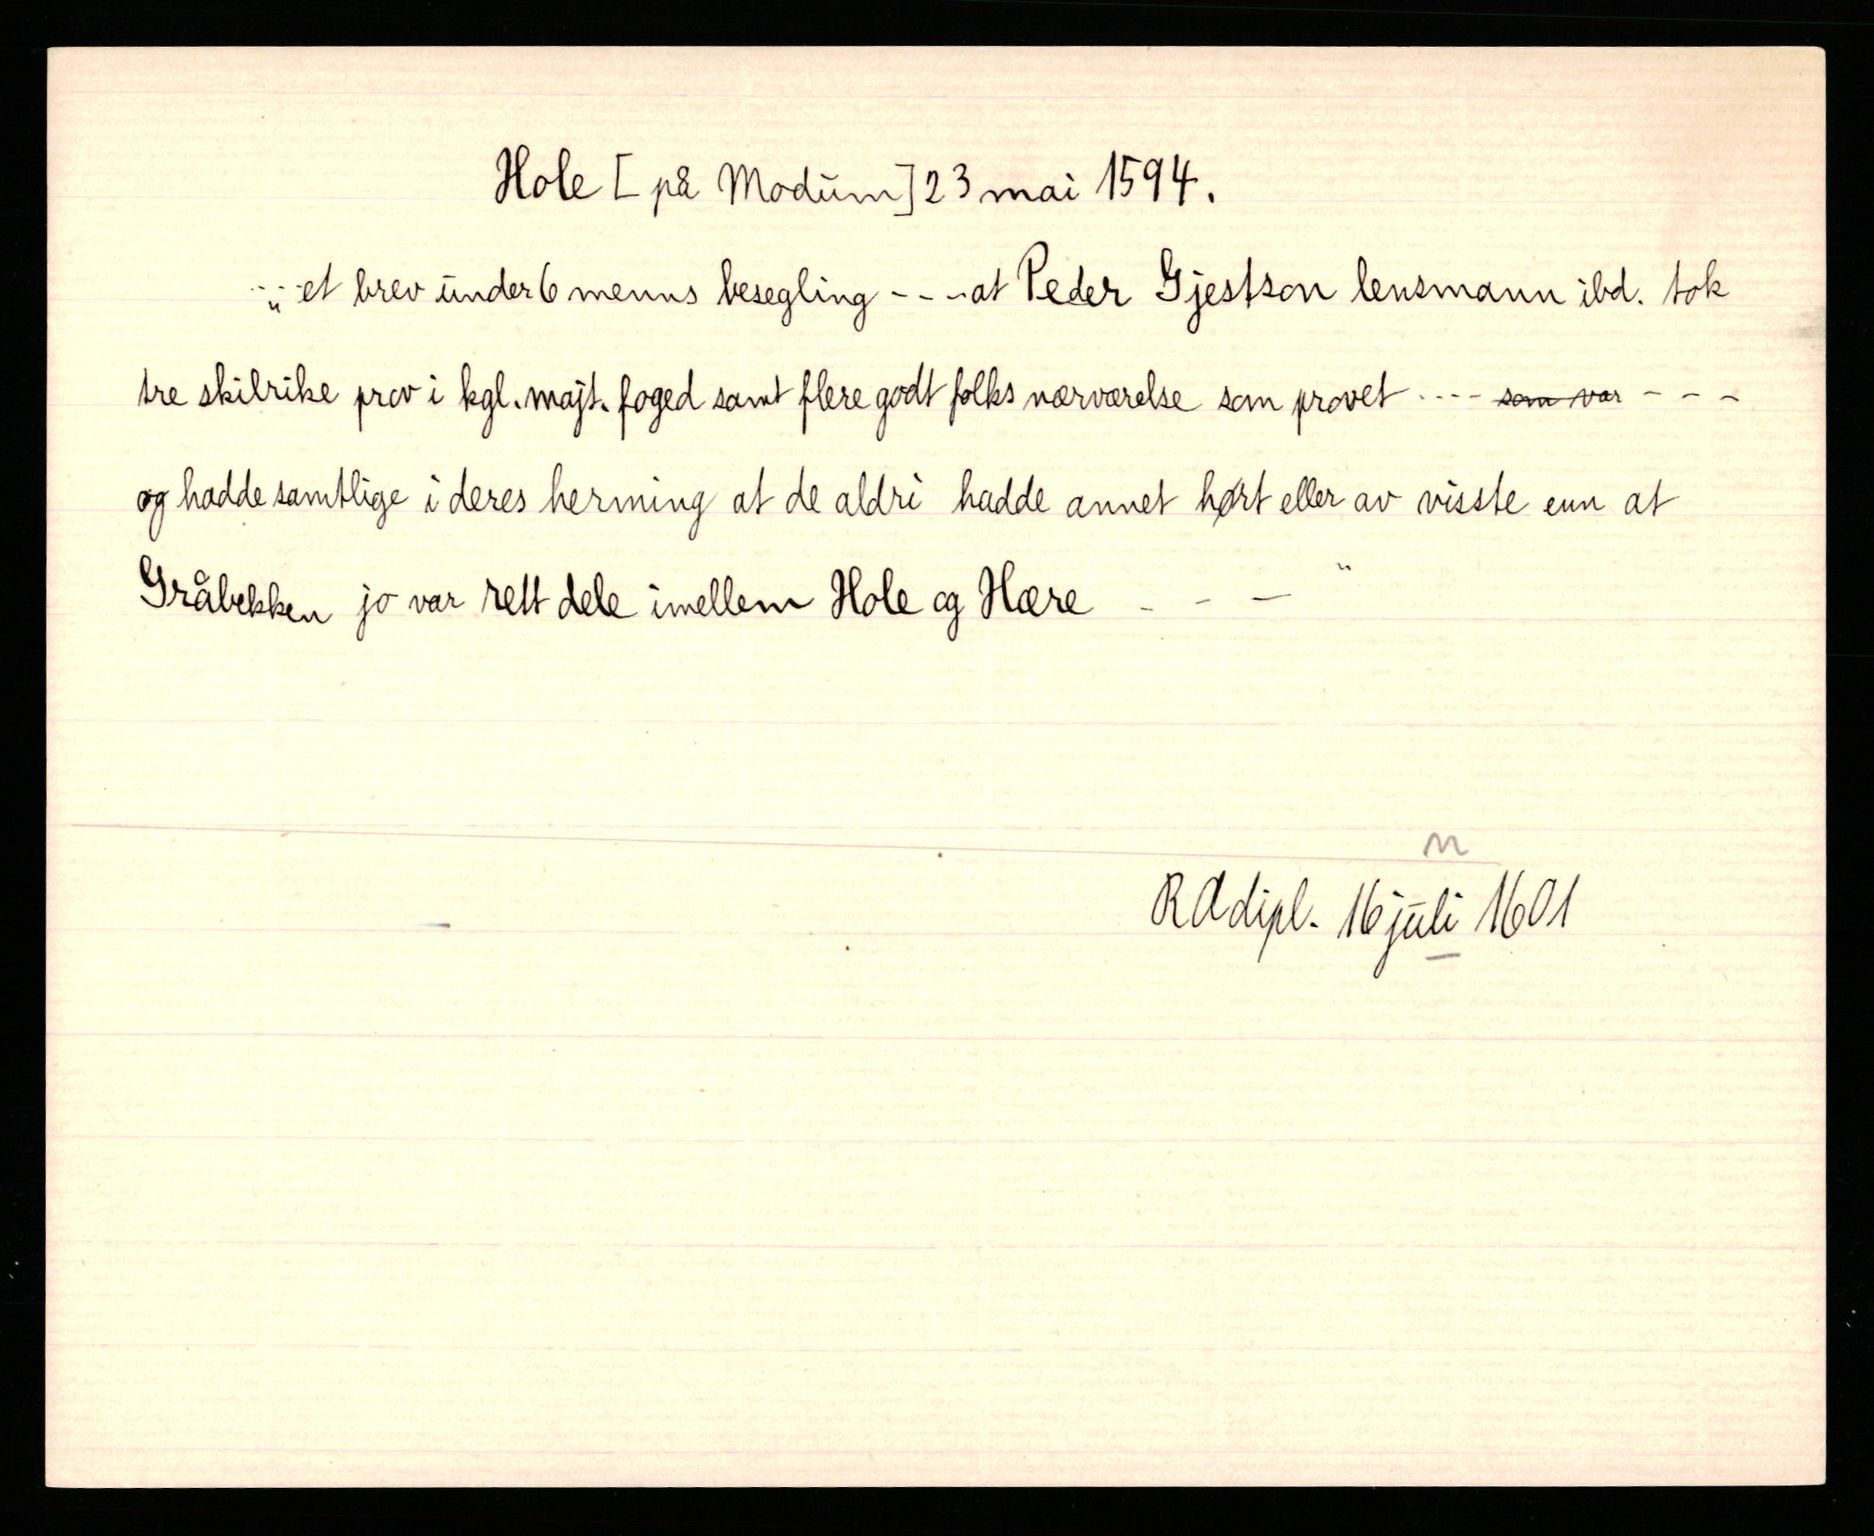 Hole [på Modum] 23 mai 1594.
„ - - - et brev under 6 menns besegling - - - at Peder Gjestson lensmann ibd. tok
tre skilrike prov i kgl. majt. foged samt flere godt folks nærværelse som provet - - - - som var - - -
og hadde samtlige i deres herming at de aldri hadde annet hørt eller av visste enn at
Gråbekken jo var rett dele imellem Hole og Hære - - - "
n
RA dipl. 16 juli 1601